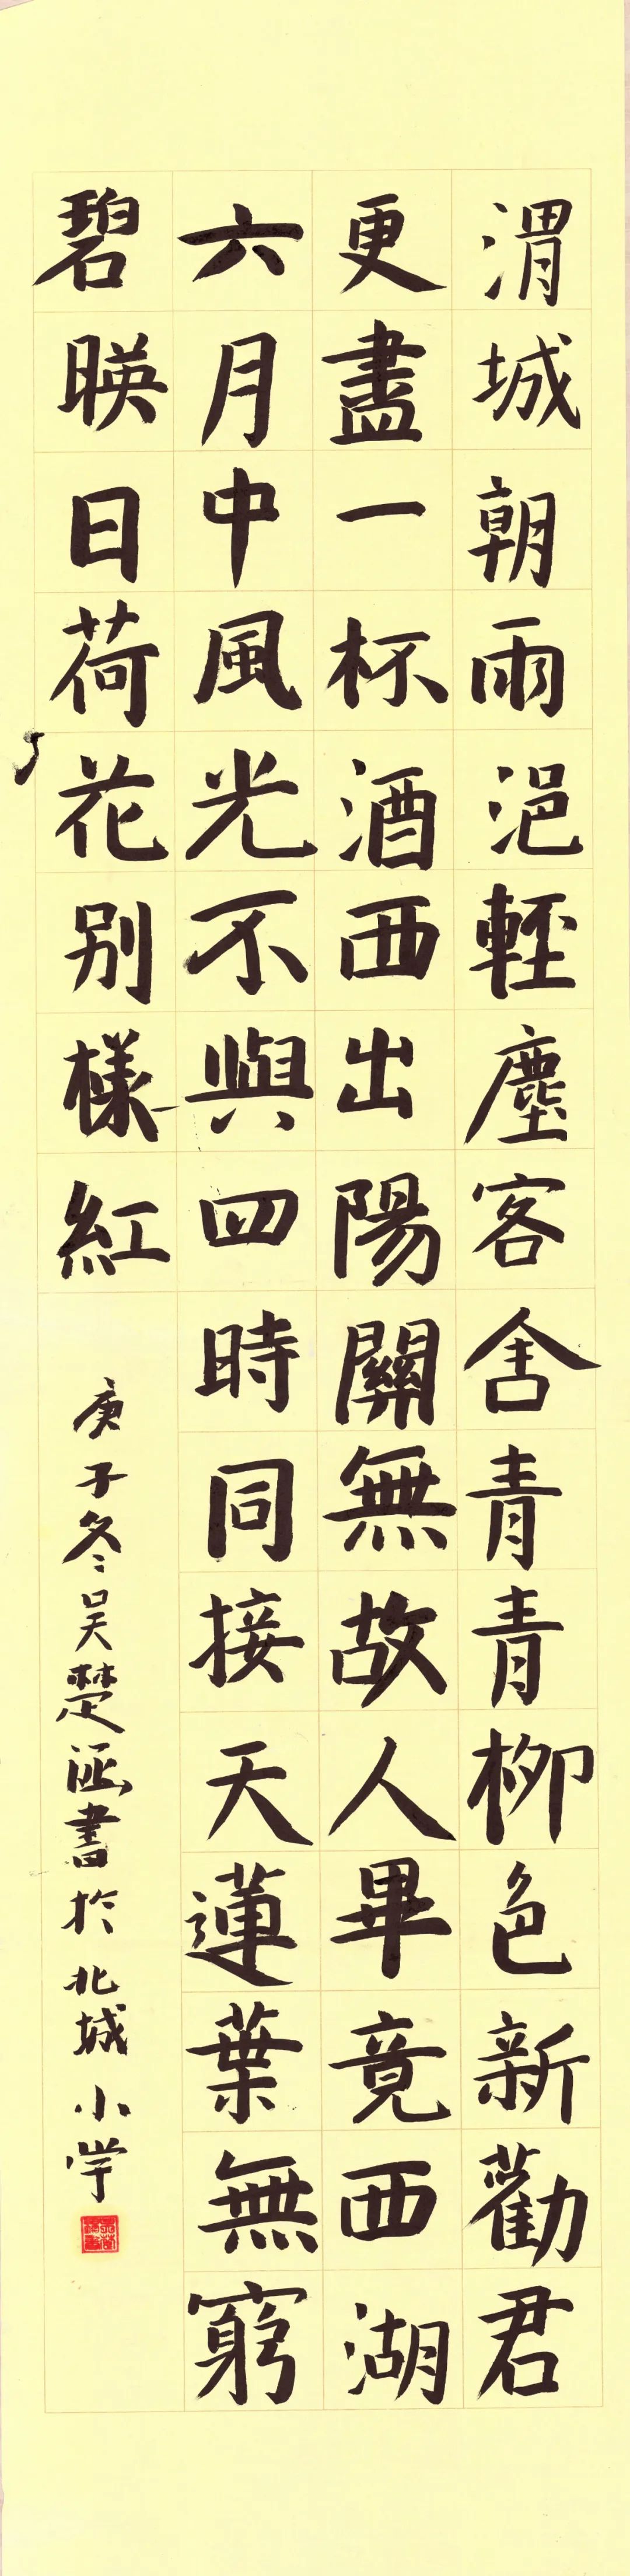 渭城朝雨浥輕塵客舍青青柳色新勸君
更盡一杯酒西出陽關無故人畢竟西湖
六月中風光不與四時同接天蓮葉無窮
碧暎日荷花别樣紅
庚子冬吴楚涵書於北城小学